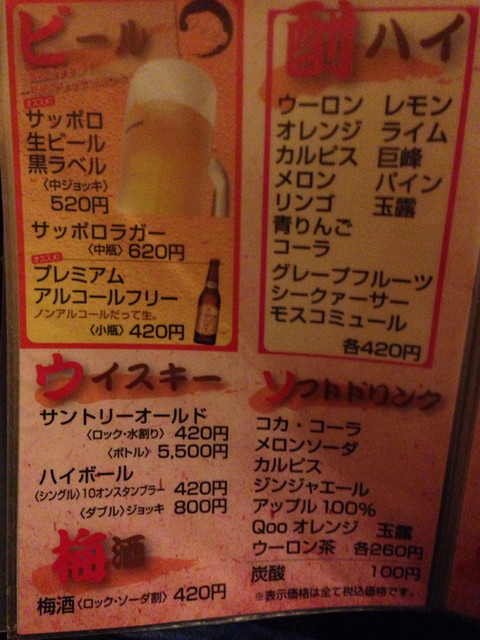 ビール
オススメ!
サッポロ
生ビール
黒ラベル
〈中ジョッキ〉
520円
サッポロラガー
〈中瓶〉620円
オススメ!
プレミアム
アルコールフリー
ノンアルコールだって生。
〈小瓶〉420円
酎ハイ
ウーロン レモン
オレンジ ライム
カルピス 巨峰
メロン パイン
リンゴ 玉露
青りんご
コーラ
グレープフルーツ
シークァーサー
モスコミュール
各420円
ウイスキー
サントリーオールド
〈ロック・水割り〉 420円
〈ボトル〉 5,500円
ハイボール
〈シングル〉10オンスタンブラー 420円
〈ダブル〉ジョッキ 800円
梅酒
梅酒〈ロック・ソーダ割〉 420円
ソフトドリンク
コカ・コーラ
メロンソーダ
カルピス
ジンジャエール
アップル100%
Qoo オレンジ 玉露
ウーロン茶 各260円
炭酸 100円
※表示価格は全て税込価格です。